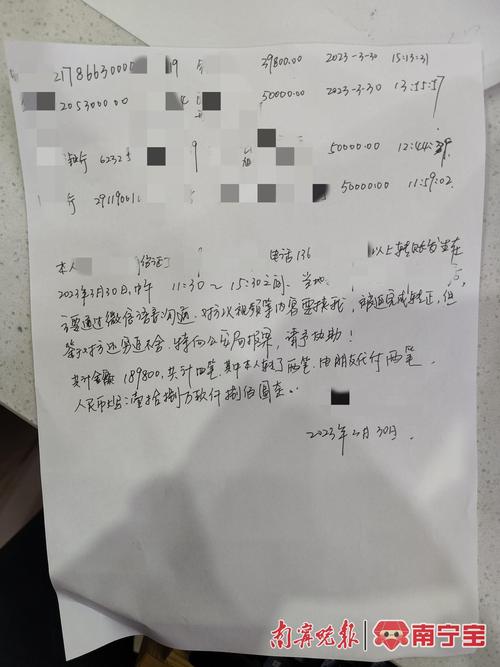 2178663000 9 39800.00 2023-3-30 15:13:31
205300000 4 50000.00 2023-3-30 13:55:57
银行 6232 9 50000.00 12:44:29
行 29119001 50000.00 11:59:02
本人 电话136 以上转账发生在
2023年3月30日,中午 11:30～15:30之间.
主要通过微信语音沟通.对方以视频等内容要挟我,完成转正,但
特向公安局报案,请予协助!
共计金额189800,共计四笔.其中本人转了两笔.由朋友代付两笔.
人民币大写:壹拾捌万玖仟捌佰圆整.
2023年3月30日.
南宁晚报 南宁宝